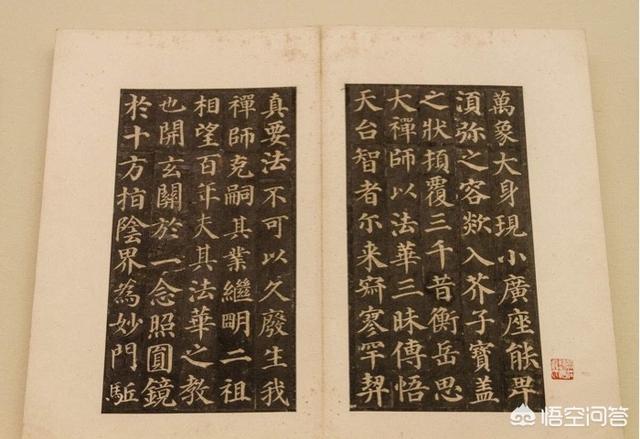 萬象大身現小廣座能卑
須弥之容欻入芥子寶盖
之狀頓覆三千昔衡岳思
大禪師以法華三昧傳悟
天台智者尔来寂寥罕契
真要法不可以久廢生我
禪師克嗣其業繼明二祖
相望百年夫其法華之教
也開玄關於一念照圓鏡
於十方指陰界為妙門駈
悟空问答